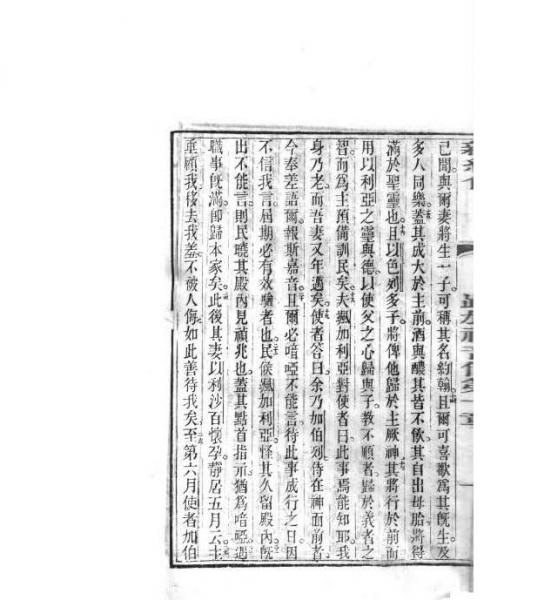 已聞與爾妻將生一子可稱其名約翰且爾可喜歡爲其旣生及
多人同樂蓋其成大於主前酒與醲其皆不飲其自出母胎將得
滿於聖靈也且以色列多子將俾他歸於主厥神其將行於前而
用以利亞之靈與德以使父之心歸與子教不順者歸於義者之
智而爲主預備訓民矣夫颯加利亞對使者曰此事焉能知耶我
身乃老而吾妻又年邁矣使者答曰余乃加伯列侍在神面前者
今奉差語爾報斯嘉音且爾必喑啞不能言待此事成行之日因
不信我言屆期必有效驗者也民候颯加利亞怪其久留殿內旣
出不能言則民曉其殿內見禎兆也蓋其點首指示猶爲喑啞遇
職事旣滿卽歸本家矣此後其妻以利沙百懷孕靜居五月云主
垂顧我移去我羞不被人侮如此善待我矣至第六月使者加伯